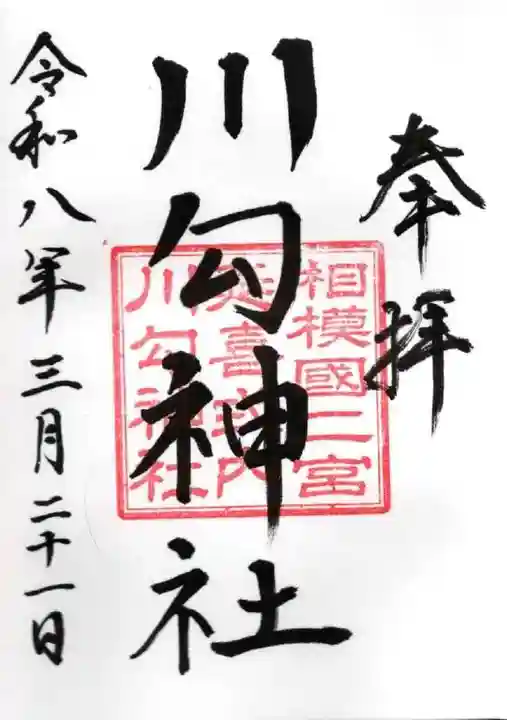 奉拝
川勾神社
相模國二宮
延喜式内
川勾神社
令和八年三月二十一日